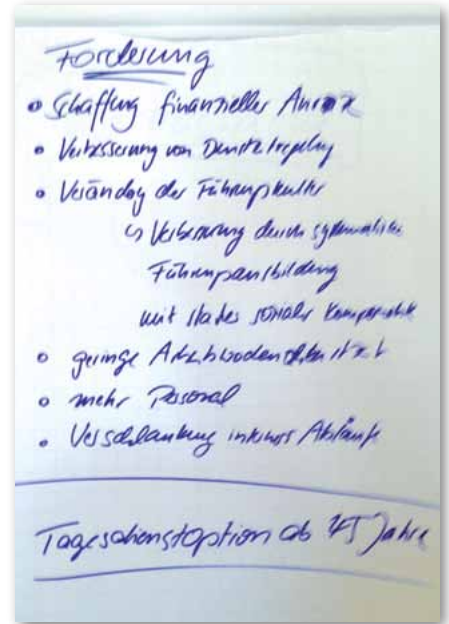 Forderung
• Schaffung finanzieller Anreize
• Verbesserung von
• Veränderung der Führungskultur
↳ Verbesserung durch systematische
Führungsausbildung
mit starker sozialer Komponente
• geringe Wochenarbeitszeit
• mehr Personal
• Verschlankung interner Abläufe
Tagesdienstoption ab 45 Jahre